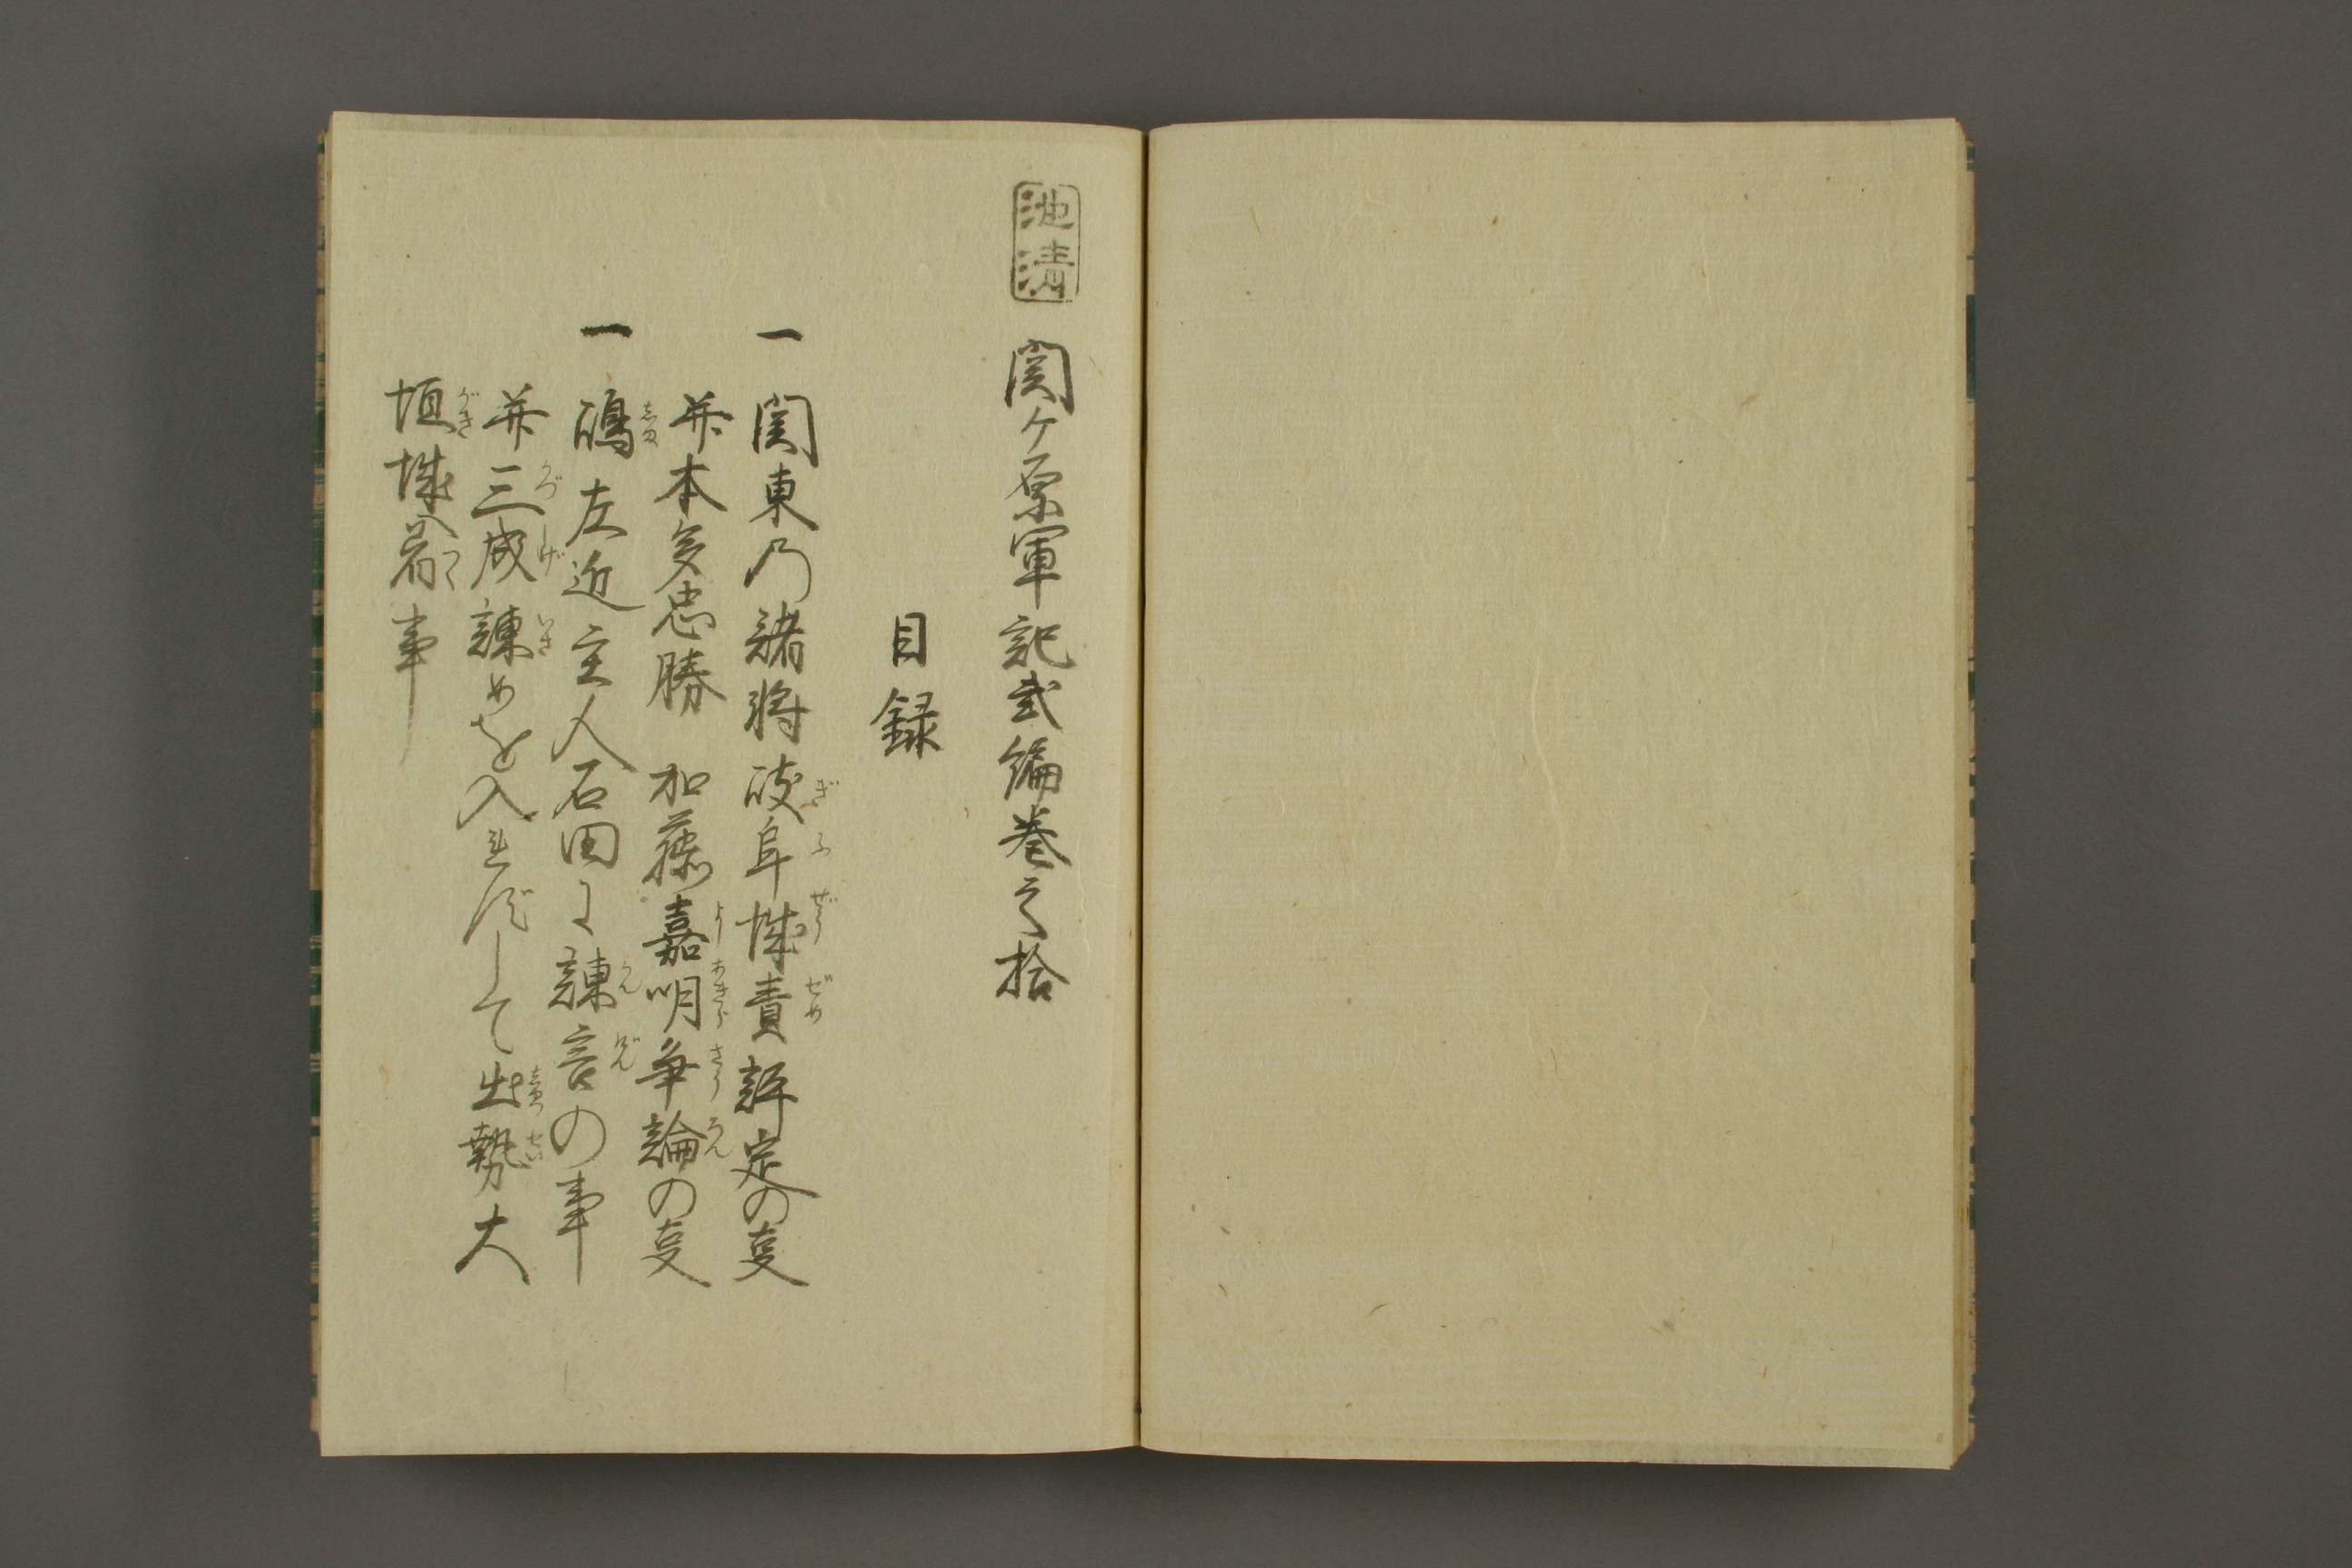 池清
関ヶ原軍記弐編巻之拾
目録
一 関東乃諸将岐阜城責評定の叓
并本多忠勝 加藤嘉明争論の叓
一 嶋左近主人石田に諫言の事
并三成諫めを入れずして出勢大
垣城へ着事